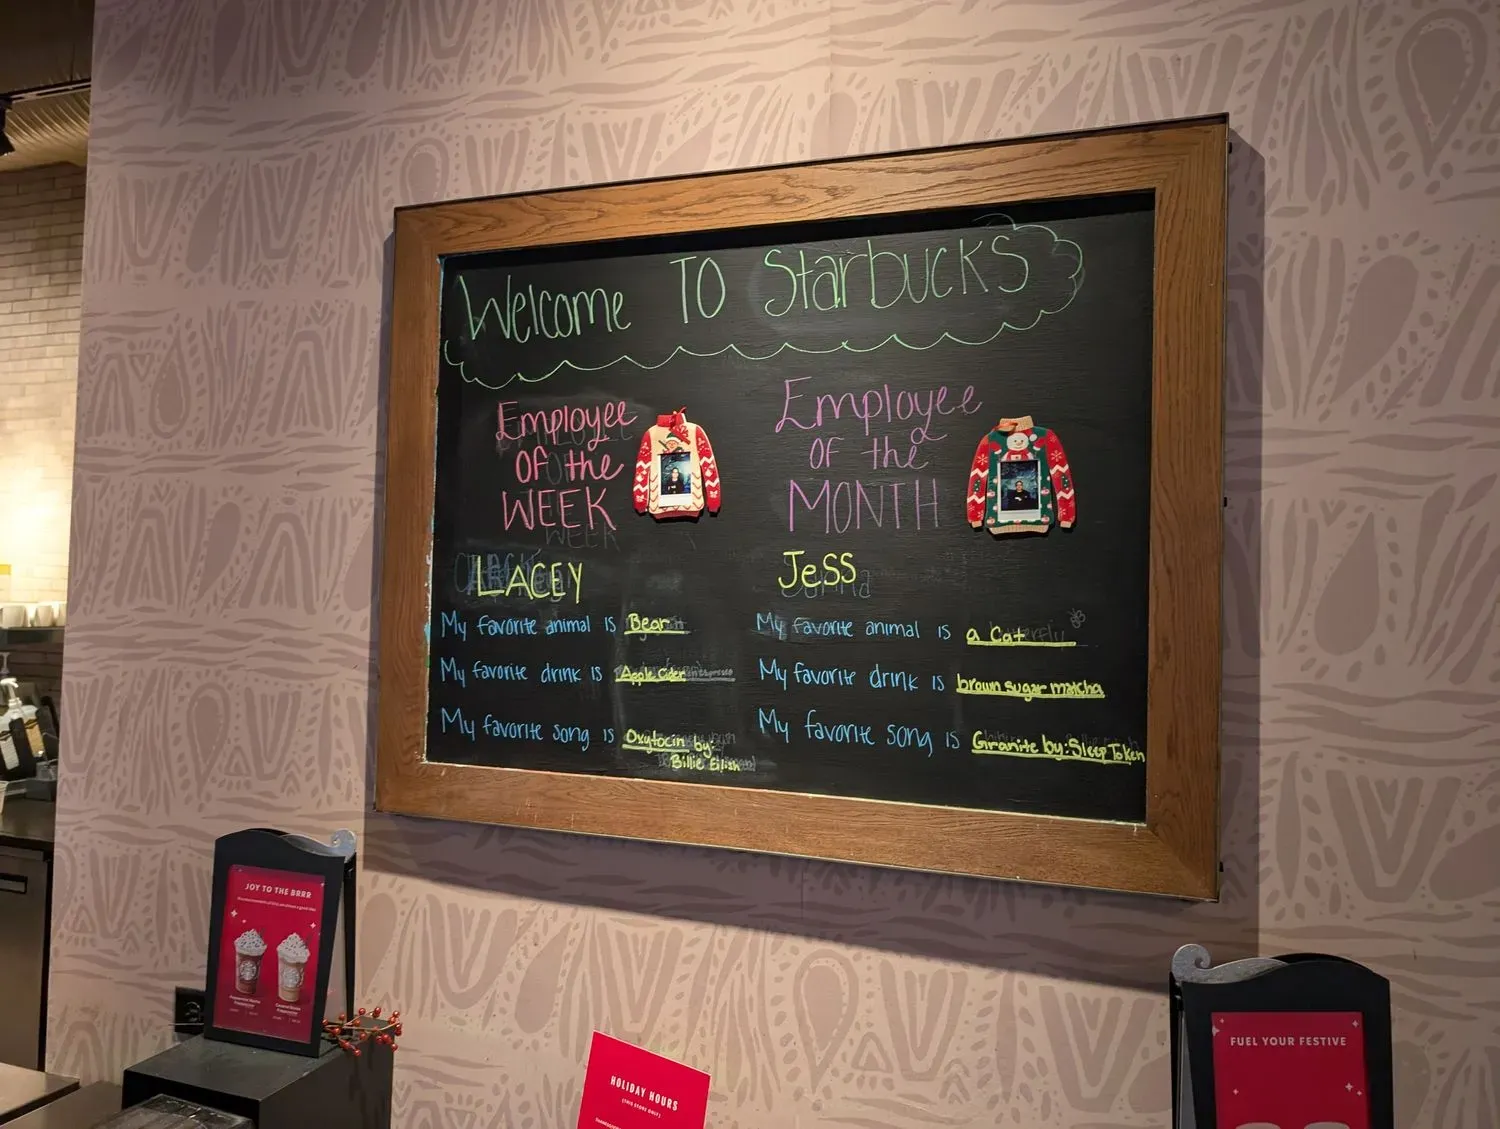 Welcome To Starbucks
Employee
of the
WEEK
LACEY
My favorite animal is Bear
My favorite drink is Apple Cider
My favorite song is Oxytocin by:
Billie Eilish
Employee
of the
MONTH
JESS
My favorite animal is a Cat
My favorite drink is brown sugar matcha
My favorite song is Granite by: Sleep Token
JOY TO THE BRRR
HOLIDAY HOURS
(THIS STORE ONLY)
FUEL YOUR FESTIVE